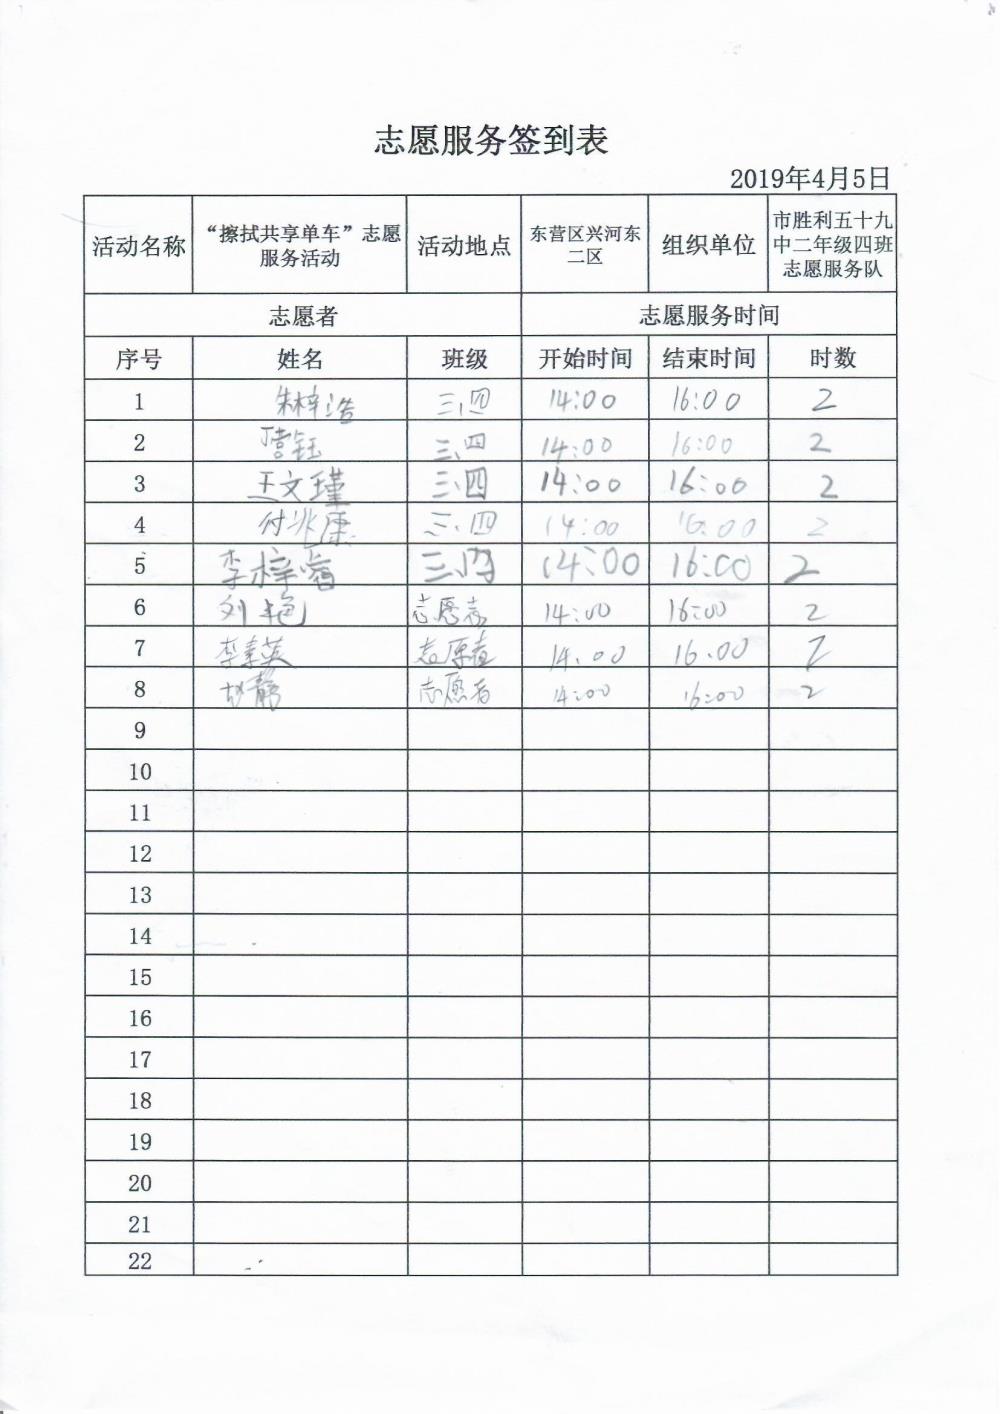 志愿服务签到表
2019年4月5日
活动名称 “擦拭共享单车”志愿服务活动 活动地点 东营区兴河东二区 组织单位 市胜利五十九中二年级四班志愿服务队
志愿者 志愿服务时间
序号 姓名 班级 开始时间 结束时间 时数
1 朱梓浩 三、四 14:00 16:00 2
2 三、四 14:00 16:00 2
3 王文瑾 三、四 14:00 16:00 2
4 付兆康 三、四 14:00 16:00 2
5 李梓睿 三、四 14:00 16:00 2
6 刘艳 志愿者 14:00 16:00 2
7 李素英 志愿者 14:00 16:00 2
8 志愿者 14:00 16:00 2
9
10
11
12
13
14
15
16
17
18
19
20
21
22